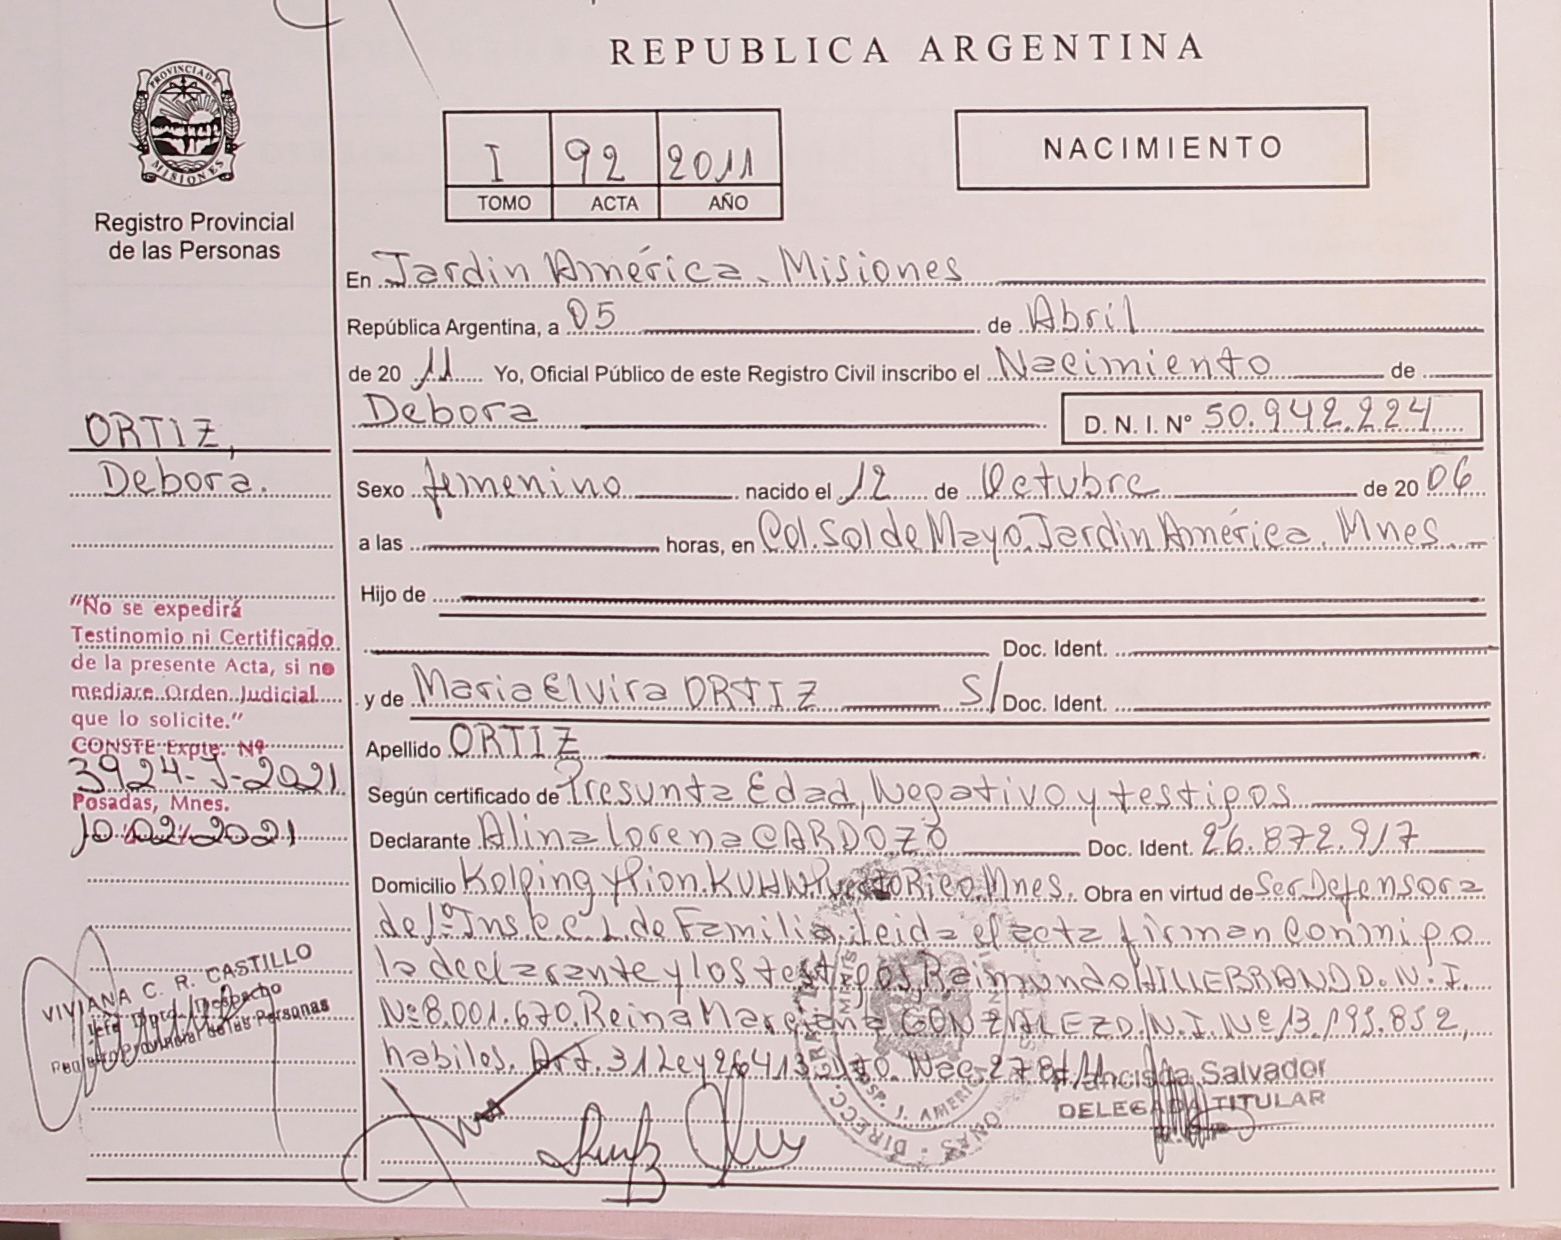 REPUBLICA ARGENTINA
PROVINCIA DE MISIONES
Registro Provincial
de las Personas
I 92 2011
TOMO ACTA AÑO
NACIMIENTO
En Jardin América. Misiones
República Argentina, a 05 de Abril
de 20 11 Yo, Oficial Público de este Registro Civil inscribo el Nacimiento de
Debora D. N. I. Nº 50.942.224
ORTIZ,
Debora.
Sexo femenino nacido el 12 de Octubre de 20 06
a las horas, en Col. Sol de Mayo. Jardin América. Mnes
Hijo de
Doc. Ident.
y de Maria Elvira ORTIZ S/ Doc. Ident.
Apellido ORTIZ
Según certificado de Presunta Edad, Negativo y testigos
Declarante Alina Lorena CARDOZO Doc. Ident. 26.872.917
Domicilio Kolping y Pion. KUHN. Puerto Rico. Mnes. Obra en virtud de Ser Defensora
de 1º Inst. C. C. L. de Familia. Leida el acta firman Conmigo
la declarante y los testigos, Reimundo HILLEBRAND D. N. I.
Nº 8.001.670, Reina Marciana GONZALEZ D. N. I. Nº 13.193.852,
habiles. Art. 31 Ley 26413 278/11
"No se expedirá
Testinomio ni Certificado
de la presente Acta, si no
mediare Orden Judicial
que lo solicite."
CONSTE Expte. Nº
3924-J-2021
Posadas, Mnes.
10/02/2021
VIVIANA C. R. CASTILLO
Jefa Dpto. Despacho
Registro Provincial de las Personas
Francisca Salvador
DELEGADA TITULAR